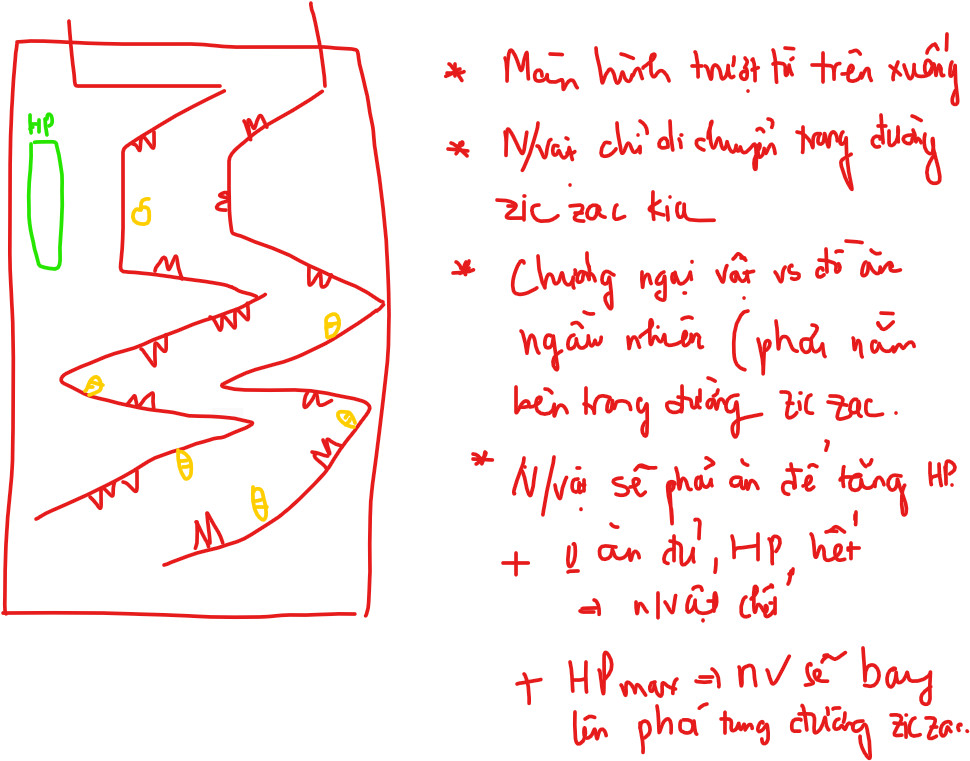 HP
* Màn hình trượt từ trên xuống
* N/vật chỉ di chuyển trong đường
zic zac kia
* Chướng ngại vật vs đồ ăn
ngẫu nhiên (phải nằm
bên trong đường zic zac.
* N/vật sẽ phải ăn để tăng HP.
+ 0 ăn đủ, HP hết
⇒ n/vật chết
+ HP max ⇒ nv sẽ bay
lên phá tung đường ziczac.